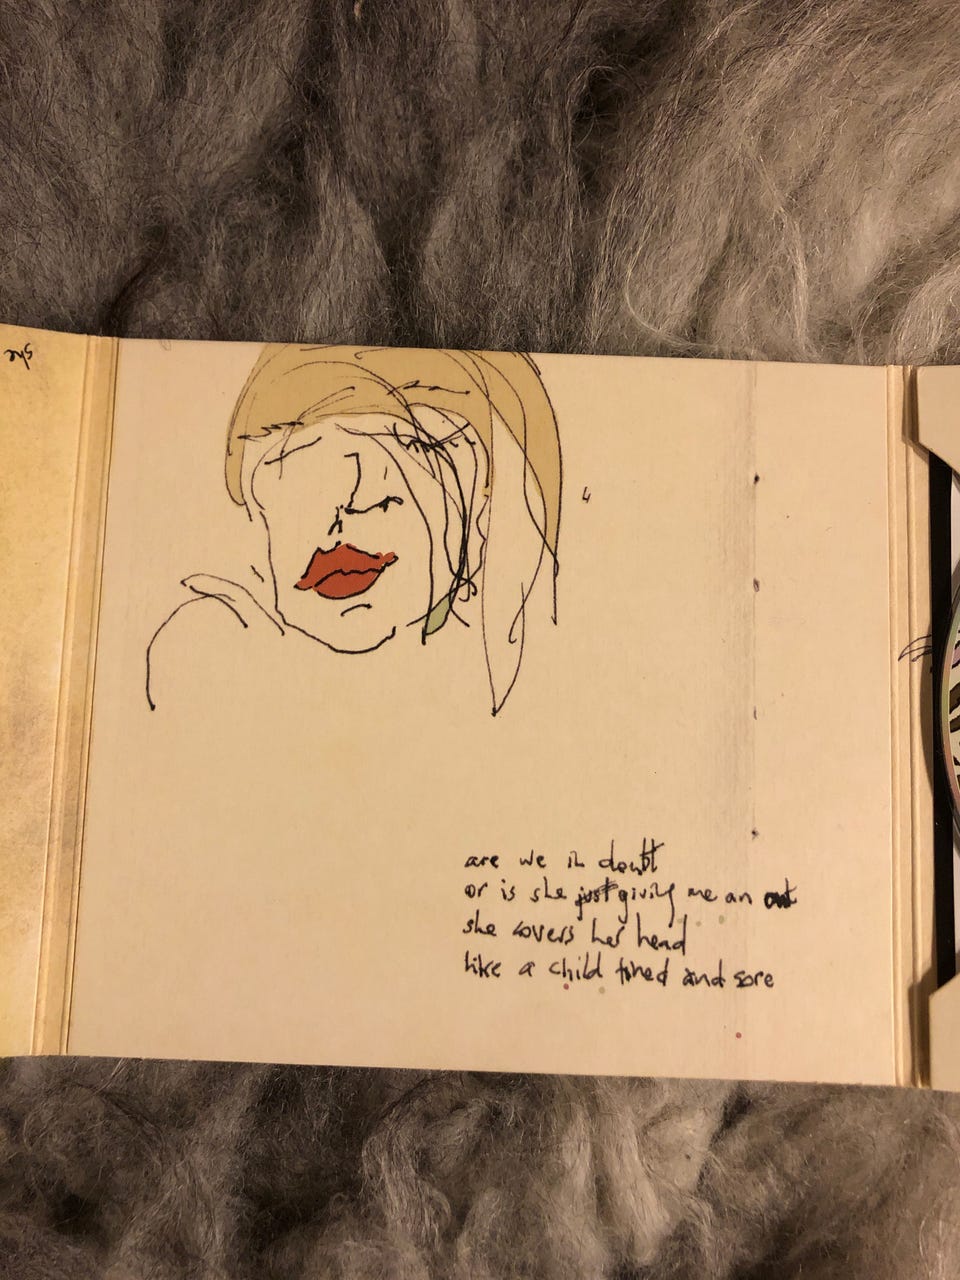 she
are we in doubt
or is she just giving me an out
she covers her head
like a child tired and sore